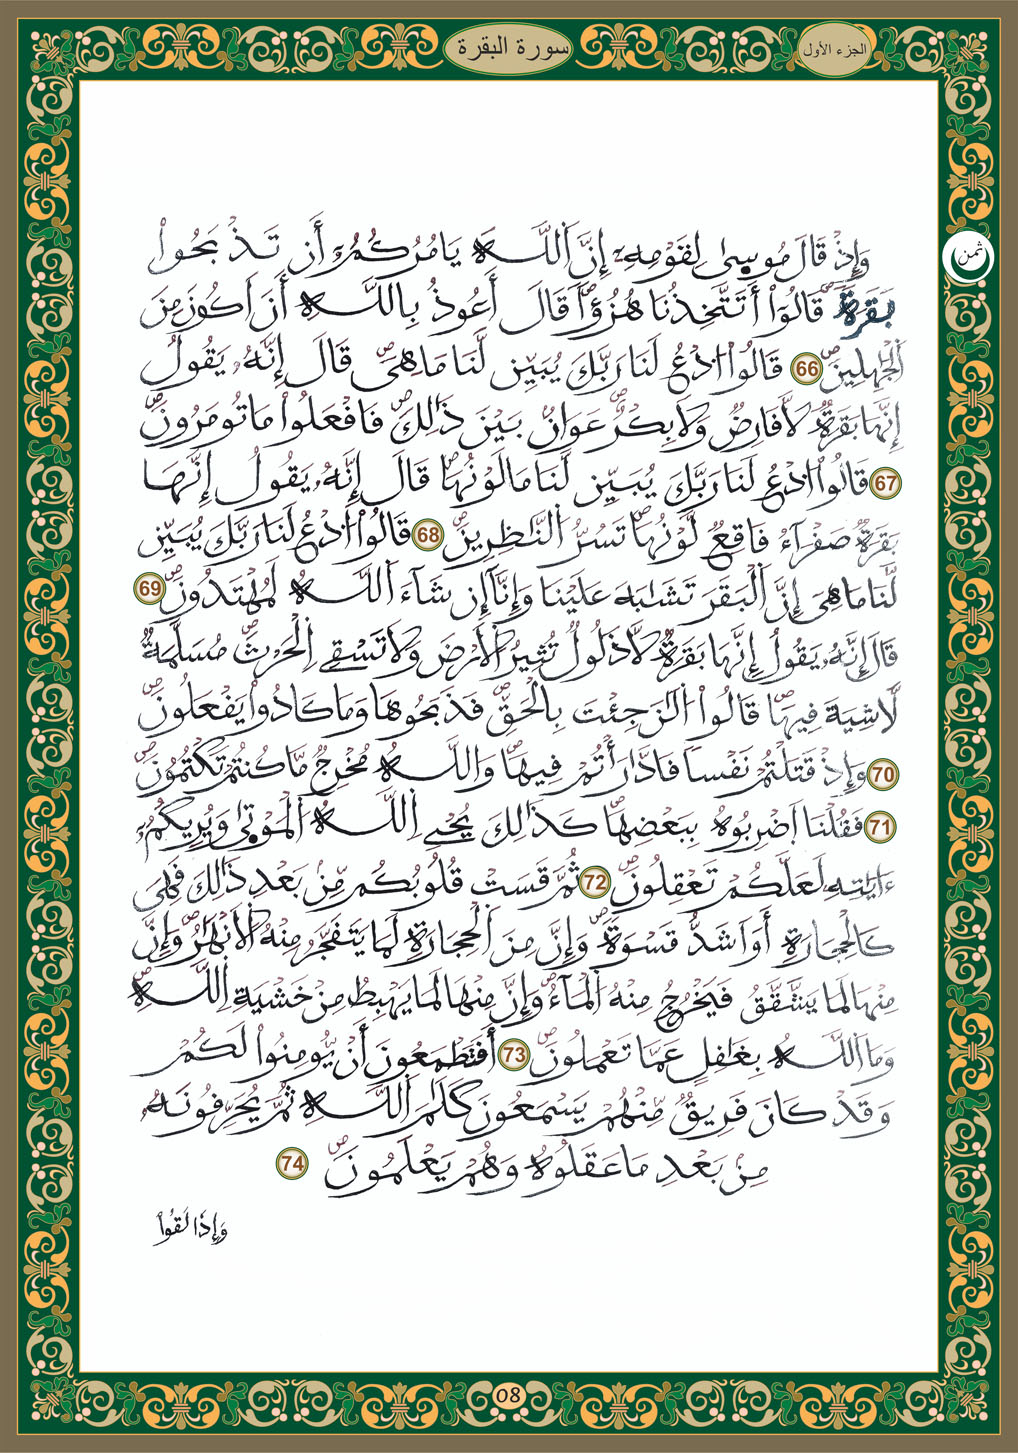 الجزء الأول
سورة البقرة
ثمن
وَإِذْ قَالَ مُوسٜىٰ لِقَوْمِهِۦٓ إِنَّ اَ۬للَّهَ يَامُرُكُمُۥٓ أَن تَذْبَحُواْ
بَقَرَةٗۖ قَالُوٓاْ أَتَتَّخِذُنَا هُزُؤاٗۖ قَالَ أَعُوذُ بِاللَّهِ أَنَ اَكُونَ مِنَ
اَ۬لْجَٰهِلِينَۖ 66 قَالُواْ اُ۟دْعُ لَنَا رَبَّكَ يُبَيِّن لَّنَا مَا هِيَۖ قَالَ إِنَّهُۥ يَقُولُ
إِنَّهَا بَقَرَةٞ لَّا فَارِضٞ وَلَا بِكْرٌۖ عَوَانُۢ بَيْنَ ذَٰلِكَۖ فَافْعَلُواْ مَا تُومَرُونَۖ
67 قَالُواْ اُ۟دْعُ لَنَا رَبَّكَ يُبَيِّن لَّنَا مَا لَوْنُهَاۖ قَالَ إِنَّهُۥ يَقُولُ إِنَّهَا
بَقَرَةٞ صَفْرَآءُ فَاقِعٞ لَّوْنُهَاۖ تَسُرُّ اُ۬لنَّٰظِرِينَۖ 68 قَالُواْ اُ۟دْعُ لَنَا رَبَّكَ يُبَيِّن
لَّنَا مَا هِيَ إِنَّ اَ۬لْبَقَرَ تَشَٰبَهَ عَلَيْنَا وَإِنَّآ إِن شَآءَ اَ۬للَّهُ لَمُهْتَدُونَۖ 69
قَالَ إِنَّهُۥ يَقُولُ إِنَّهَا بَقَرَةٞ لَّا ذَلُولٞ تُثِيرُ اُ۬لْأَرْضَ وَلَا تَسْقِے اِ۬لْحَرْثَۖ مُسَلَّمَةٞ
لَّا شِيَةَ فِيهَاۖ قَالُواْ اُ۬لَٰنَ جِئْتَ بِالْحَقِّۖ فَذَبَحُوهَا وَمَا كَادُواْ يَفْعَلُونَۖ
70 وَإِذْ قَتَلْتُمْ نَفْساٗ فَادَّٰرَٰٔتُمْ فِيهَاۖ وَاللَّهُ مُخْرِجٞ مَّا كُنتُمْ تَكْتُمُونَۖ
71 فَقُلْنَا اَ۪ضْرِبُوهُ بِبَعْضِهَاۖ كَذَٰلِكَ يُحْيِ اِ۬للَّهُ اُ۬لْمَوْتٜىٰ وَيُرِيكُمُۥٓ
ءَايَٰتِهِۦ لَعَلَّكُمْ تَعْقِلُونَۖ 72 ثُمَّ قَسَتْ قُلُوبُكُم مِّنۢ بَعْدِ ذَٰلِكَ فَهِيَ
كَالْحِجَارَةِ أَوَ اَشَدُّ قَسْوَةٗۖ وَإِنَّ مِنَ اَ۬لْحِجَارَةِ لَمَا يَتَفَجَّرُ مِنْهُ اُ۬لْأَنْهَٰرُۖ وَإِنَّ
مِنْهَا لَمَا يَشَّقَّقُ فَيَخْرُجُ مِنْهُ اُ۬لْمَآءُۖ وَإِنَّ مِنْهَا لَمَا يَهْبِطُ مِنْ خَشْيَةِ اِ۬للَّهِۖ
وَمَا اَ۬للَّهُ بِغَٰفِلٍ عَمَّا تَعْمَلُونَۖ 73 أَفَتَطْمَعُونَ أَنْ يُّومِنُواْ لَكُمْ
وَقَدْ كَانَ فَرِيقٞ مِّنْهُمْ يَسْمَعُونَ كَلَٰمَ اَ۬للَّهِ ثُمَّ يُحَرِّفُونَهُۥ
مِنۢ بَعْدِ مَا عَقَلُوهُ وَهُمْ يَعْلَمُونَۖ 74
وَإِذَا لَقُواْ
08